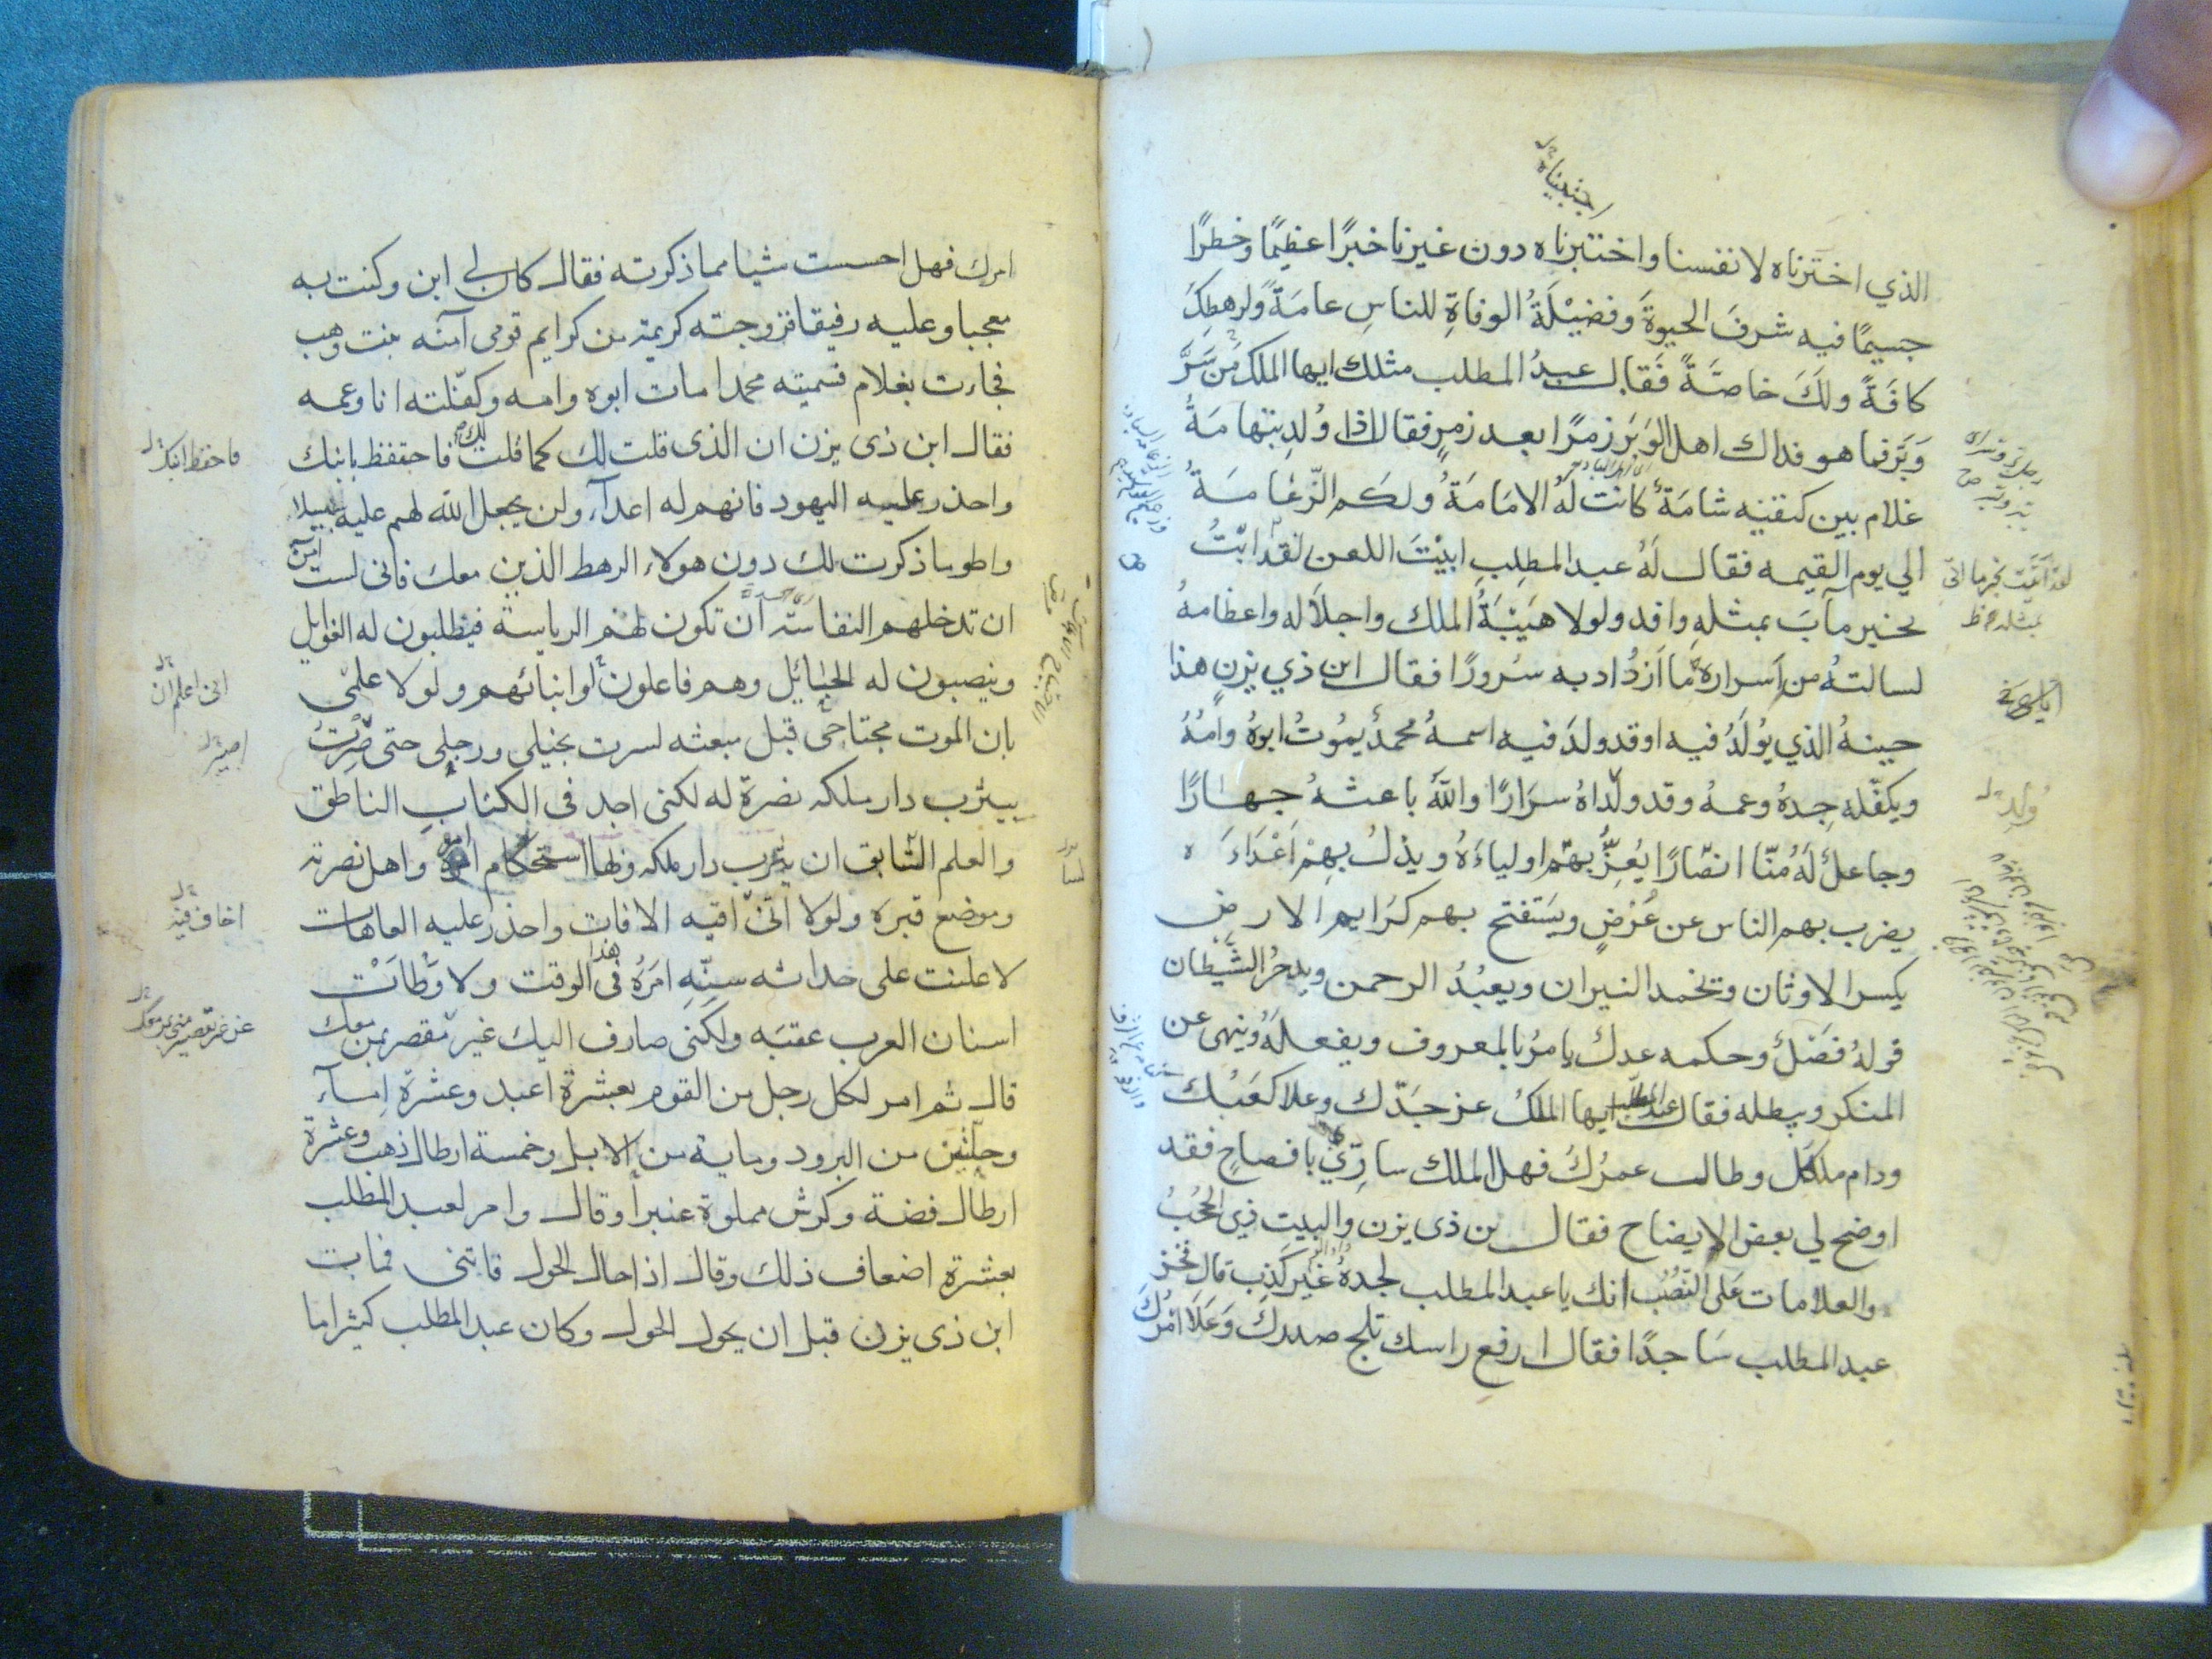 الذي اختزناه لانفسنا واختبرناه دون غيرنا خبرًا عظيمًا وخطرًا
جسيمًا فيه شرفَ الحيوة وفضيْلَةُ الوفاةِ للناسِ عامَةً ولرهطِكَ
كافَةً ولَكَ خاصَّةً فَقال عبدُ المطلب مثلك ايها الملك مَن سَّرَّ
وَبَرَّ فما هو فداك اهل الوَبَر زمرًا بعد زمرٍ فقال اذا وُلدِ بتهامَةُ
غلام بين كتفيْه شامَةٌ كانت لَهُ الامَامَةُ ولكم الزّعامَةُ
الي يوم القيمه فقال لَهُ عبد المطلِبِ ابيْتَ اللعن لقد ابْتُ
بخير مآبَ بمثلهِ وافد ولولا هَيْبَةُ الملك واجلاَله واعظامهُ
لسالتهُ من اَسراره ما اَزدُاد به سُرورًا فقال ابن ذي يزن هذا
حينهُ الذي يوُلَدُ فيه اوقد ولدَ فيه اسمهُ محمدٌ يمُوتُ ابوهُ وامُهُ
ويكفّله جدهُ وعمهُ وقد ولّداهُ سرَارًا واللهُ باعثهُ جهارًا
وجاعلٌ لَهُ مُنّا انصّارًا يُعِزُّ بهمْ اولياءَهُ ويذلُ بهِمْ اَعْدَاءَه
يضرب بهم الناس عن عُرْضٍ ويَستفتح بهم كرَايم الارض
يكسر الاوثان وتخمد النيران ويعبُدُ الرحمن ويدحرُ الشيْطان
قولهُ فصْلٌ وحكمه عدلٌ يامرُ بالمعروف ويفعلَهُ وينهى عن
المنكر ويبطله فقال عبد المطلب ايها الملكُ عز جَدّك وعلا كعَبُك
ودام ملكك وطال عمرُكَ فهل الملك سارّيْ بافصاحٍ فقد
اوضح لي بعض الايضاح فقال بن ذى يزن والبيت ذي الحُجُبُ
والعلامات عَلى النُّصُبْ انك يا عبد المطلب لجدهُ غَيْر كَذِب قال فخر
عبد المطلب سَاجدًا فقال ارفع راسك ثلج صدرك وَعَلَا امْرُكَ
امرك فهل احسست شيا مما ذكرته فقال كان لي ابن وكنت به
معجبا وعليه رفيقا فزوجته كريمة من كرايم قومى آمنه بنت وهب
فجاءت بغلام فسميته محمدا مات ابوه وامه وكفّلته انا وعمه
فقال ابن ذى يزن ان الذى قلت لك كما قلت لك فاحتفظ بابنك
واحذر عليه اليهود فانهم له اعدآء ولن يجعل الله لهم عليه سبيلا
واطو ما ذكرت لك دون هولاء الرهط الذين معك فانى لست آمن
ان تدخلهم النفاسَة اَن تكون لهم الرياسة فيطلبون له الغوايل
وينصبون له الحبائل وهم فاعلون او ابنائهم ولولا علمى
بان الموت مجتاحى قبل مبعثه لسرت بخيلى ورجلى حتى صِرْتُ
بيثرب دار ملكه نصرة له لكنى اجد فى الكتاب الناطق
والعلم السّابق ان يثرب دار ملكه وبها استحكام امره واهل نصرته
وموضع قبره ولولا انى اقيه الافات واحذر عليه العاهات
لاعلنت على حداثه سنّه امَرُه فى هذا الوقت ولاوَطَاتْ
اسنان العرب عقبَه ولكنى صارف اليك غير مقصر بمن معك
قال ثم امر لكل رجل من القوم بعشرة اعبد وعشرة اِماَء
وحلّتين من البرود وماية من الابل وخمسة ارطال ذهب وعشرة
ارطال فضة وكرش مملوة عنبراً وقال وامر لعبد المطلب
بعشرة اضعاف ذلك وقال اذا حال الحول فاتنى فمات
ابن ذى يزن قبل ان يحول الحول وكان عبد المطلب كثيرا ما
فاحفظ ابنك
انى اعلم ان
اصير
اخاف فيه